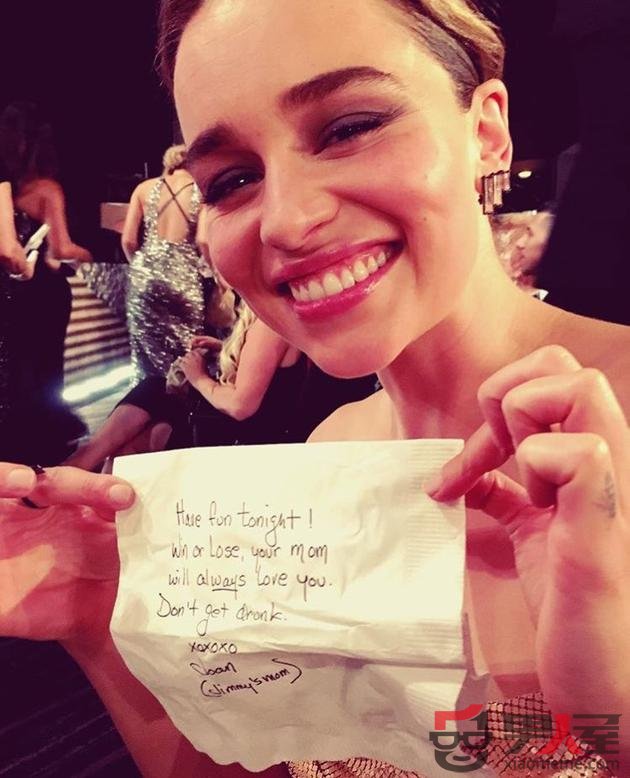 Have fun tonight!
Win or Lose, your mom
will always love you.
Don't get drunk.
xoxoxo
Joan
(Jimmy's mom)
xiaomeinie.com